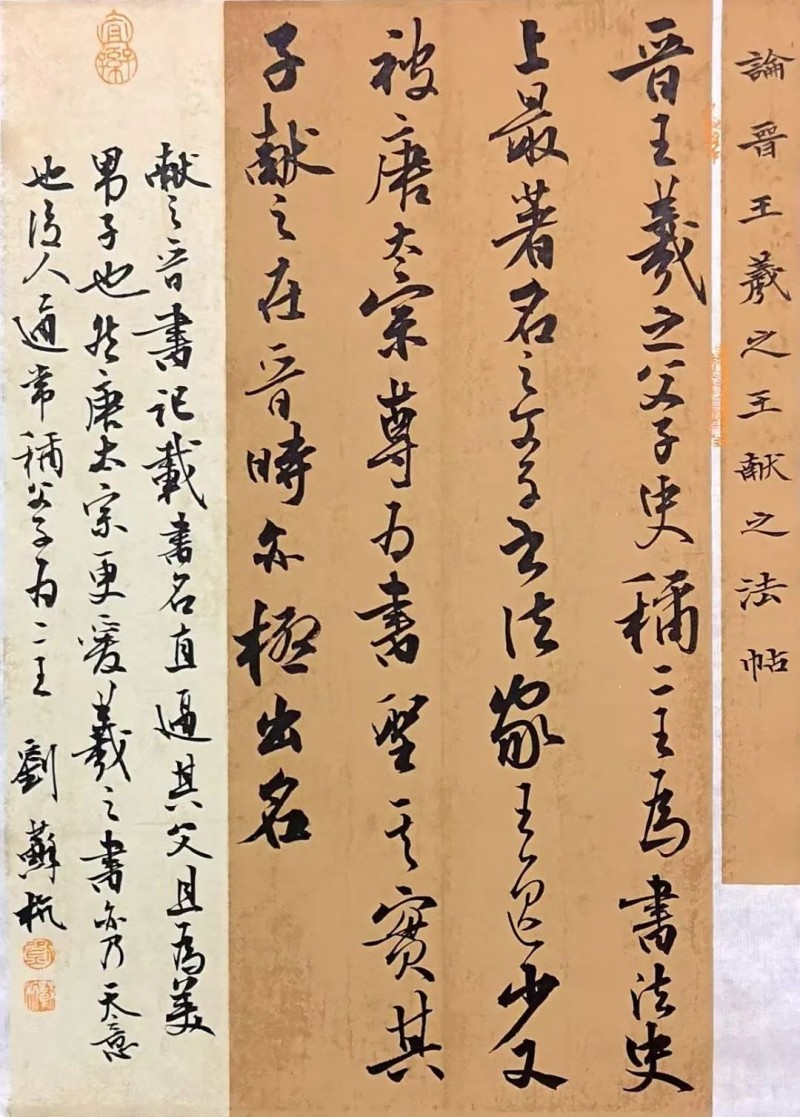 論晉王羲之王献之法帖
晋王羲之父子史稱二王為書法史
上最著名之父子書法家王逸少又
被唐太宗尊为書聖其實其
子献之在晋時亦極出名
献之晋書記載書名直逼其父且為美
男子也然唐太宗更爱羲之書亦乃天意
也後人通常稱父子为二王 劉蘇杭